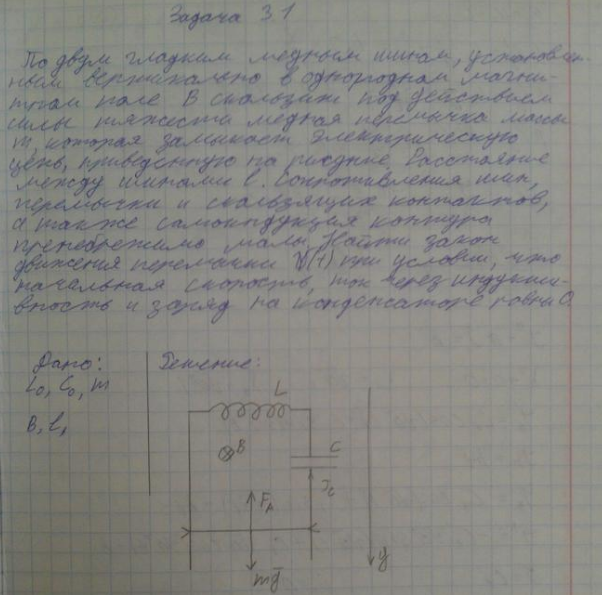 Задача 3.1
По двум гладким медным шинам, установлен-
ным вертикально в однородном магни-
тном поле B скользит под действием
силы тяжести медная перемычка массы
m, которая замыкает электрическую
цепь, приведенную на рисунке. Расстояние
между шинами l. Сопротивления шин,
перемычки и скользящих контактов,
а также самоиндукция контура
пренебрежимо малы. Найти закон
движения перемычки (t) при условии, что
начальная скорость, ток через индукти-
вность и заряд на конденсаторе равны 0.
Дано: Решение:
L₀, C₀, m
B, l,
L
⊗B C
I_c
F_A
mg̅ y